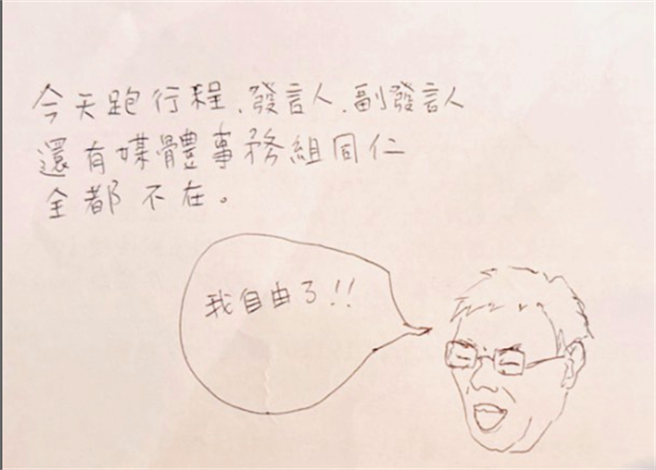 今天跑行程、發言人、副發言人
還有媒體事務組同仁
全都不在。
我自由了!!